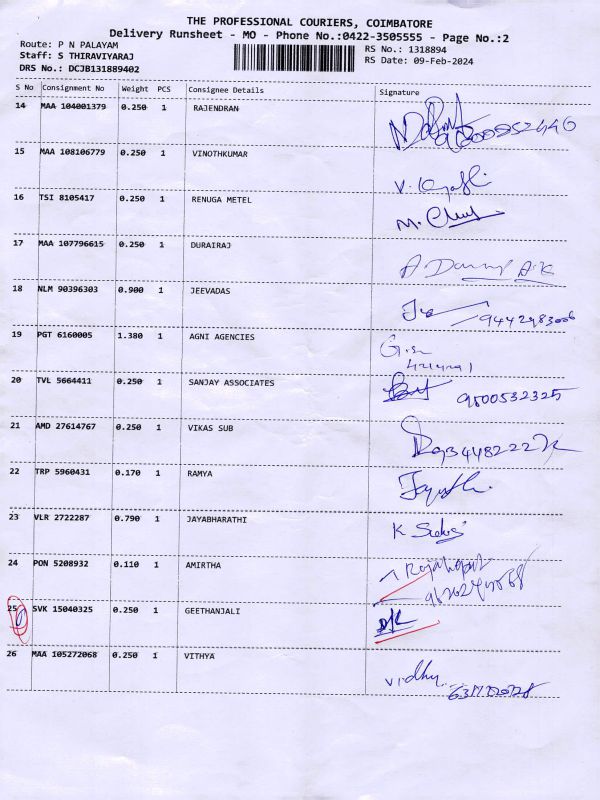 THE PROFESSIONAL COURIERS, COIMBATORE
Delivery Runsheet - MO - Phone No.:0422-3505555 - Page No.:2
Route: P N PALAYAM
Staff: S THIRAVIYARAJ
DRS No.: DCJB131889402
RS No.: 1318894
RS Date: 09-Feb-2024
S No Consignment No Weight PCS Consignee Details Signature
14 MAA 104001379 0.250 1 RAJENDRAN
15 MAA 108106779 0.250 1 VINOTHKUMAR
16 TSI 8105417 0.250 1 RENUGA METEL
17 MAA 107796615 0.250 1 DURAIRAJ
18 NLM 90396303 0.900 1 JEEVADAS
19 PGT 6160005 1.380 1 AGNI AGENCIES
20 TVL 5664411 0.250 1 SANJAY ASSOCIATES 9500532325
21 AMD 27614767 0.250 1 VIKAS SUB
22 TRP 5960431 0.170 1 RAMYA
23 VLR 2722287 0.790 1 JAYABHARATHI
24 PON 5208932 0.110 1 AMIRTHA
25 SVK 15040325 0.250 1 GEETHANJALI
26 MAA 105272068 0.250 1 VITHYA vidhy